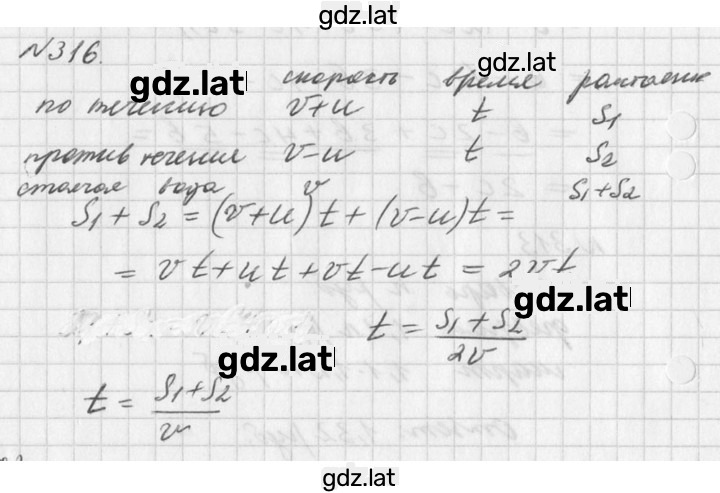 gdz.lat
N316.
gdz.lat
gdz.lat
скорость время расстояние
по течению v+u t S1
против течения v-u t S2
стоячая вода v S1+S2
S1 + S2 = (v+u)t + (v-u)t =
= vt+ut+vt-ut = 2vt
gdz.lat
t = S1+S2 / 2v
gdz.lat
t = S1+S2 / v
gdz.lat